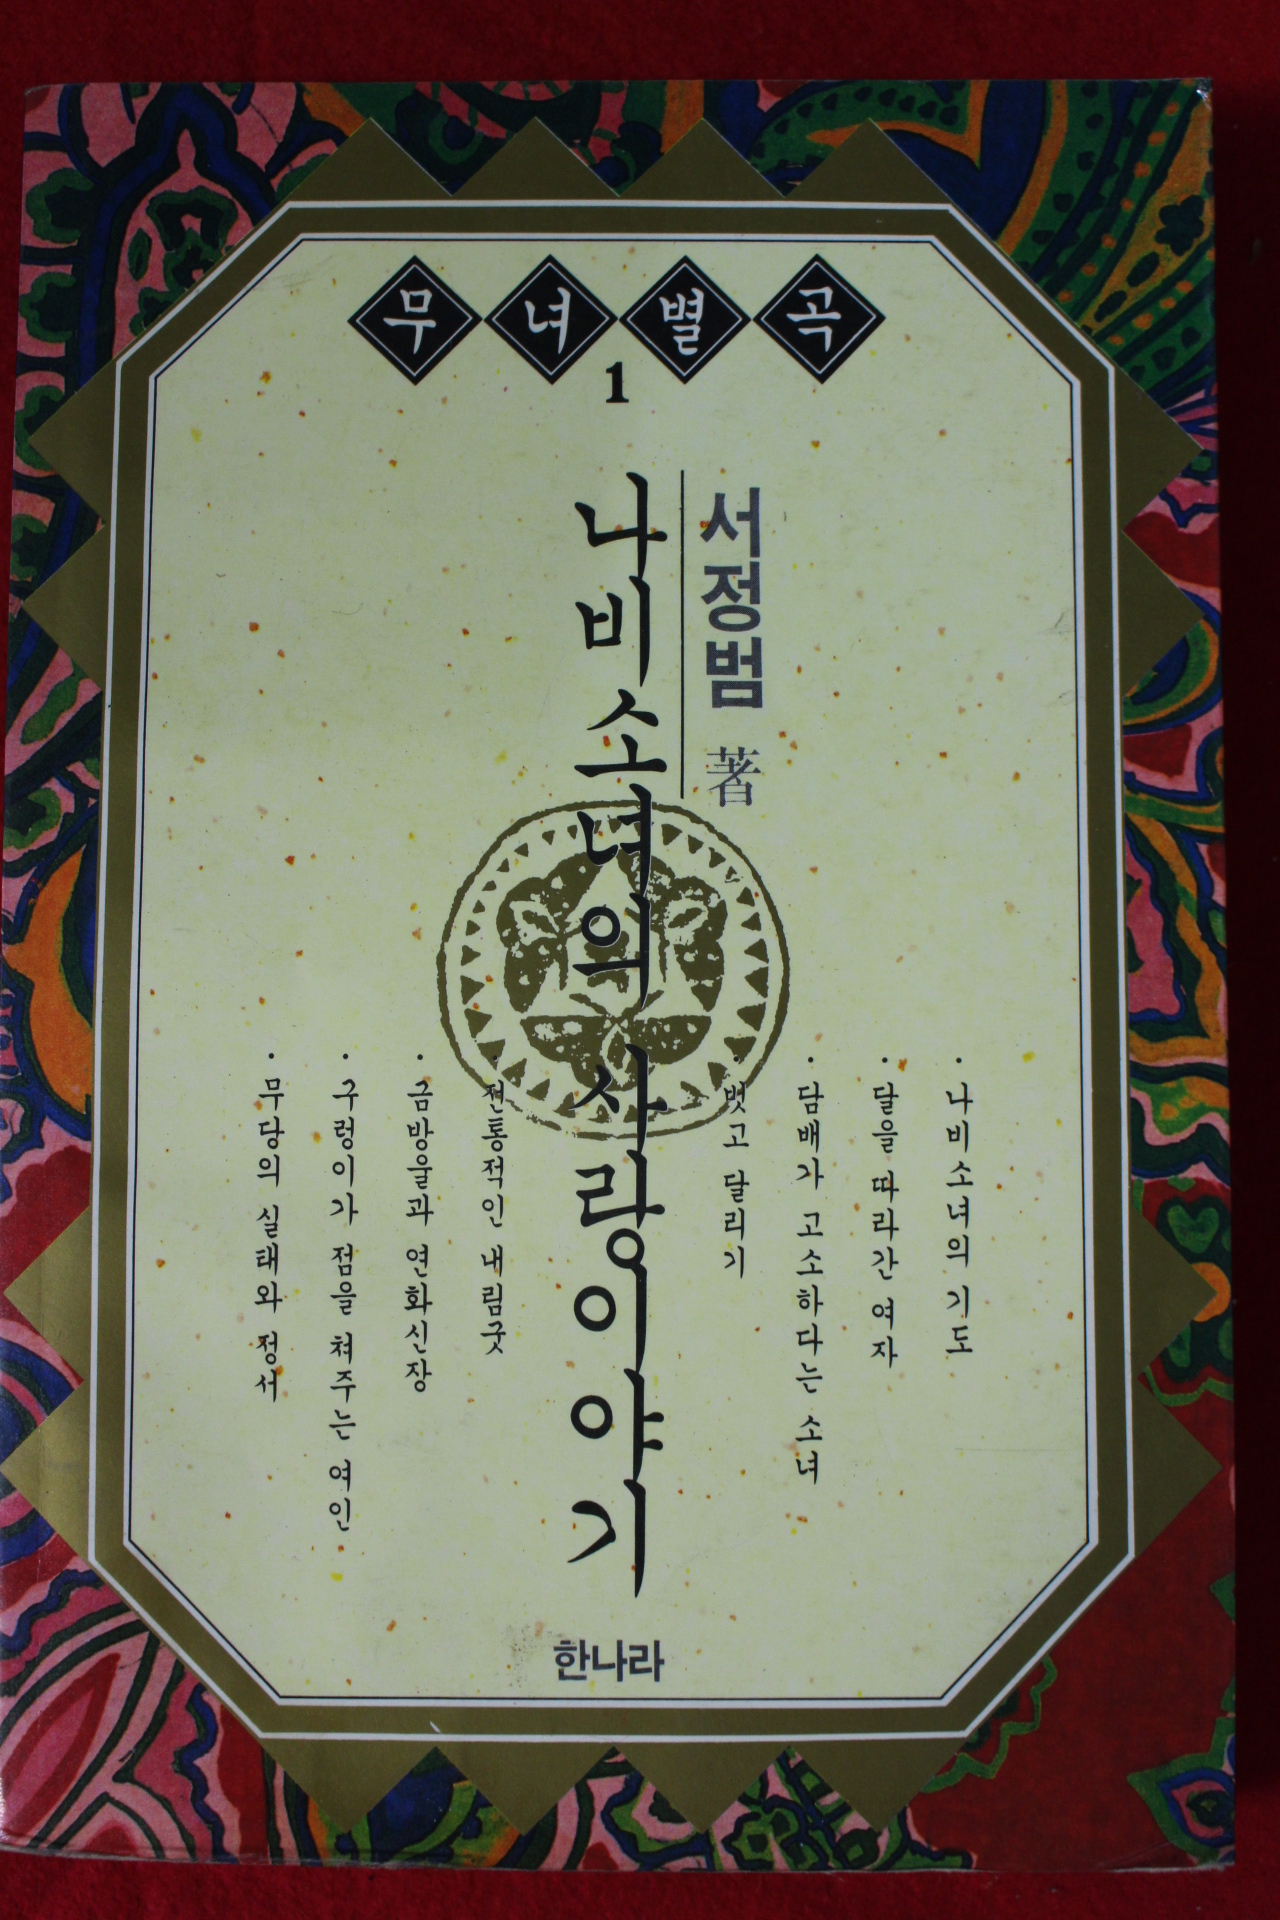 무녀별곡
1
서정범 著
나비소녀의 사랑이야기
• 나비소녀의 기도
• 달을 따라간 여자
• 담배가 고소하다는 소녀
• 벗고 달리기
• 전통적인 내림굿
• 금방울과 연화신장
• 구렁이가 점을 쳐주는 여인
• 무당의 실태와 정서
한나라